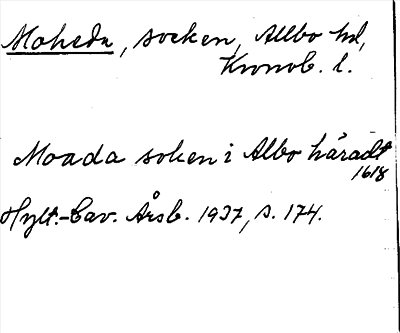 Moheda, socken, Allbo hd,
Kronob. l.
Moada soken i Albo häradt
1618
Hylt.-Cav. Årsb. 1937, s. 174.